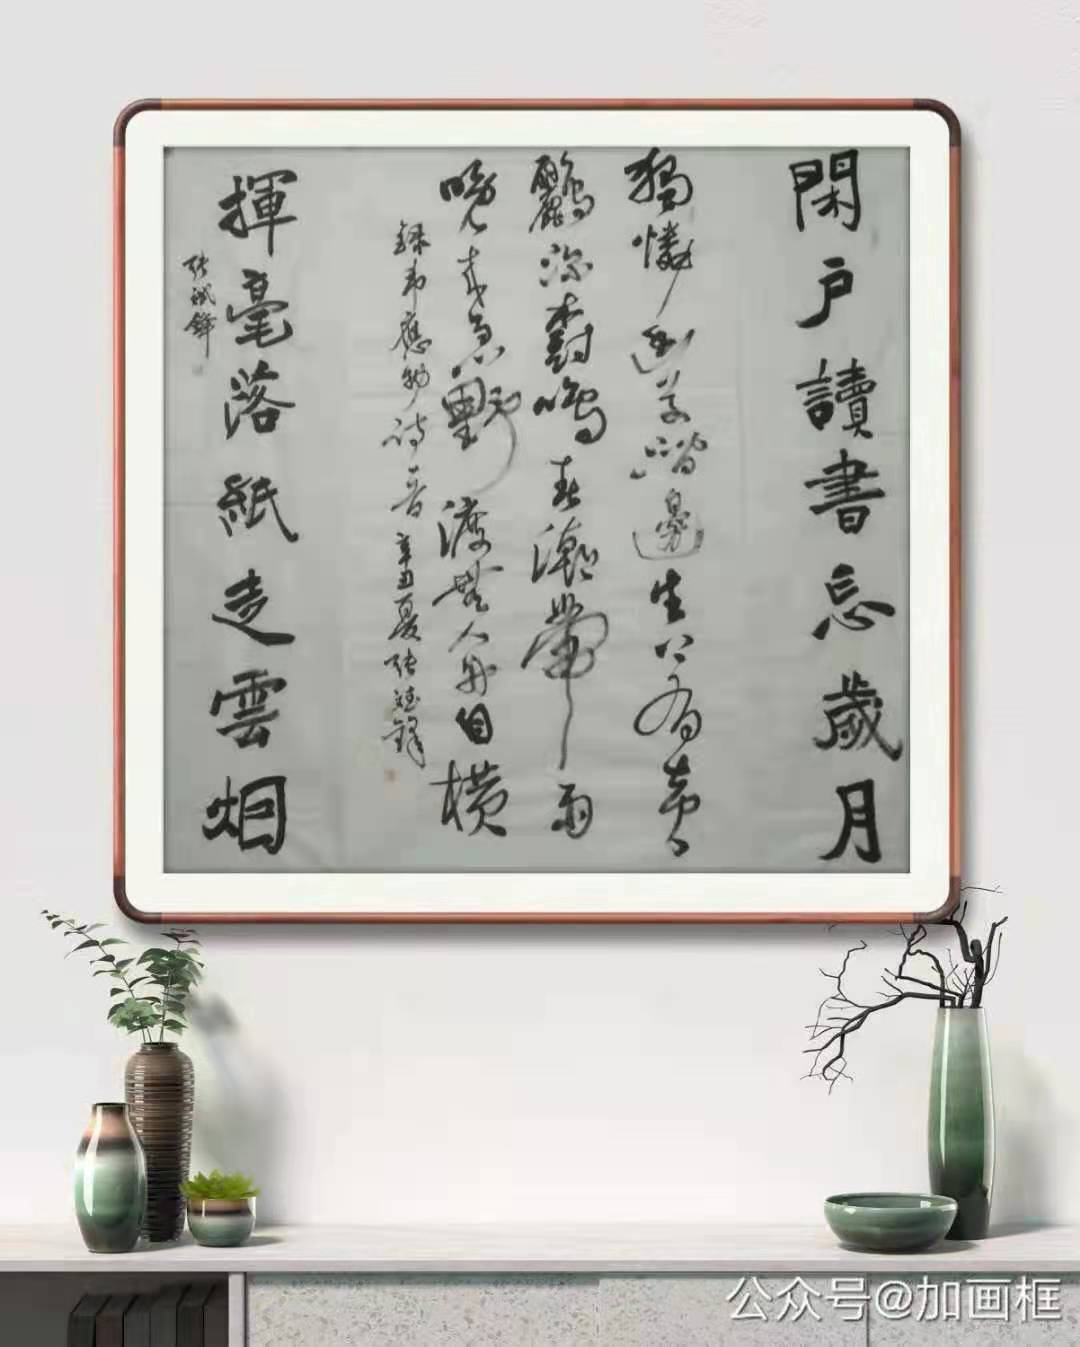 閑户讀書忘歲月
獨憐幽草澗邊生上有黄
鸝深樹鳴春潮帶雨
晚來急野渡無人舟自橫
録韋應物詩一首 辛丑夏 张斌鋒
揮毫落紙走雲烟
张斌鋒
公众号@加画框